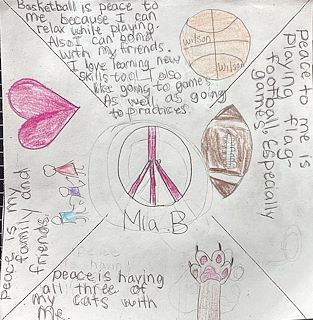 Basketball is peace to
me because I can
relax while playing.
Also I can bond
with my friends.
I love learning new
skills too! I also
like going to games
As well as going
to practices.
wilson
wilson
peace to me is
playing flag-
football, especially
games!
peace is my
family and
friends.
Mia.B
peace is having
all three of
my cats with
me